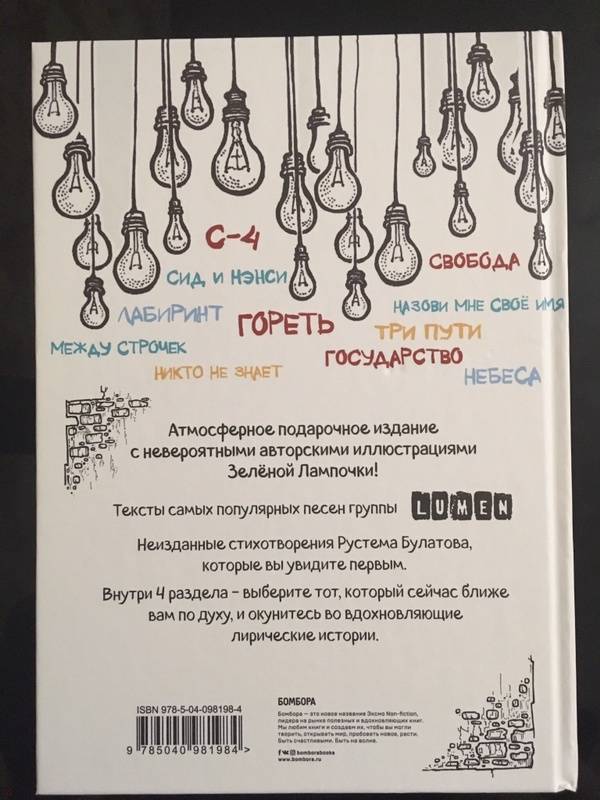 С-4
СВОБОДА
СИД И НЭНСИ
НАЗОВИ МНЕ СВОЁ ИМЯ
ЛАБИРИНТ
ГОРЕТЬ
ТРИ ПУТИ
МЕЖДУ СТРОЧЕК
ГОСУДАРСТВО
НИКТО НЕ ЗНАЕТ
НЕБЕСА
Атмосферное подарочное издание
с невероятными авторскими иллюстрациями
Зелёной Лампочки!
Тексты самых популярных песен группы LUMEN
Неизданные стихотворения Рустема Булатова,
которые вы увидите первым.
Внутри 4 раздела – выберите тот, который сейчас ближе
вам по духу, и окунитесь во вдохновляющие
лирические истории.
ISBN 978-5-04-098198-4
9 785040 981984 >
БОМБОРА
Бомбора – это новое название Эксмо Non-fiction,
лидера на рынке полезных и вдохновляющих книг.
Мы любим книги и создаем их, чтобы вы могли
творить, открывать мир, пробовать новое, расти.
Быть счастливыми. Быть на волне.
bomborabooks
www.bombora.ru